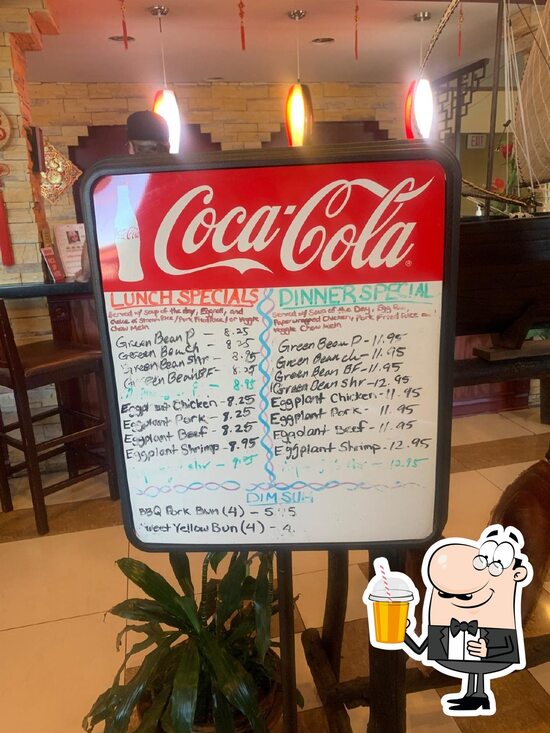 EXIT
Coca-Cola
LUNCH SPECIALS
Served w/ Soup of the day, Eggroll, and
Choice of Steam Rice / Pork Fried Rice / or Veggie
Chow Mein
Green Bean P - 8.25
Green Bean ch - 8.25
Green Bean Shr - 8.95
Green Bean BF - 8.25
8.95
Eggplant Chicken - 8.25
Eggplant Pork - 8.25
Eggplant Beef - 8.25
Eggplant Shrimp - 8.95
DINNER SPECIAL
Served w/ Soup of the Day, Egg Roll,
Paperwrapped Chicken, Pork Fried Rice or
Veggie Chow Mein
Green Bean P - 11.95
Green Bean ch - 11.95
Green Bean BF - 11.95
Green Bean Shr - 12.95
Eggplant Chicken - 11.95
Eggplant Pork - 11.95
Eggplant Beef - 11.95
Eggplant Shrimp - 12.95
12.95
DIM SUM
BBQ Pork Bun (4) -
Sweet Yellow Bun (4) -